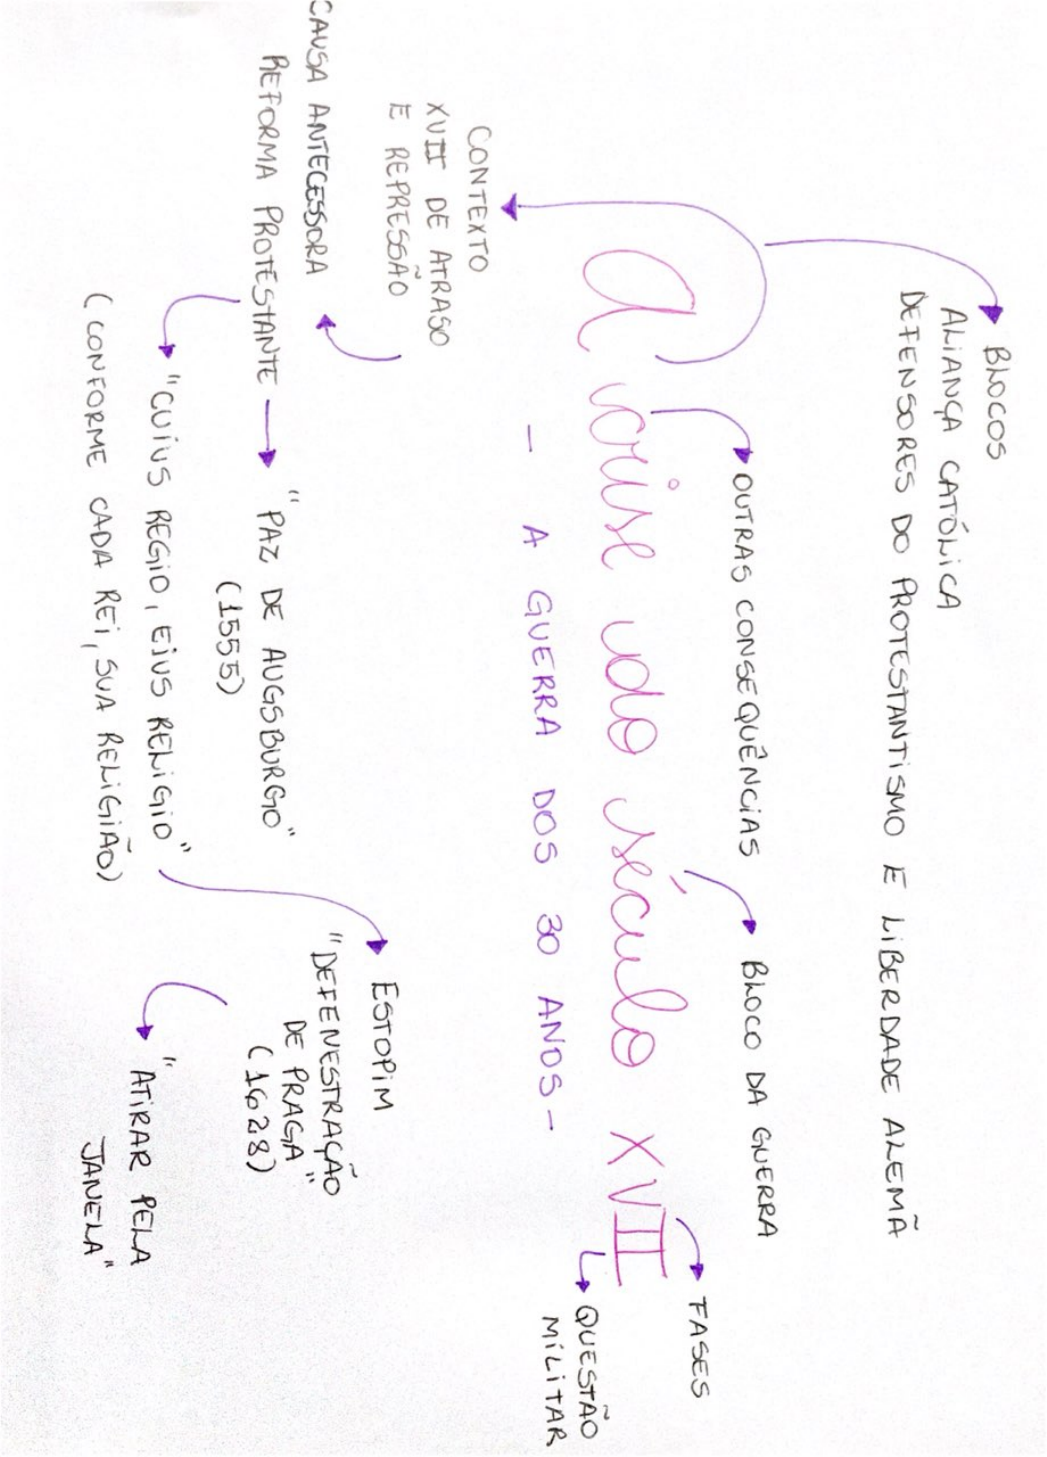 BLOCOS
ALIANÇA CATÓLICA
DEFENSORES DO PROTESTANTISMO E LIBERDADE ALEMÃ
OUTRAS CONSEQUÊNCIAS
BLOCO DA GUERRA
FASES
A crise do século XVII
QUESTÃO
MILITAR
- A GUERRA DOS 30 ANOS -
CONTEXTO
XVII DE ATRASO
E REPRESSÃO
CAUSA ANTECESSORA
REFORMA PROTESTANTE
"PAZ DE AUGSBURGO"
(1555)
"CUIUS REGIO, EIUS RELIGIO"
(CONFORME CADA REI, SUA RELIGIÃO)
ESTOPIM
"DEFENESTRAÇÃO
DE PRAGA"
(1628)
"ATIRAR PELA
JANELA"